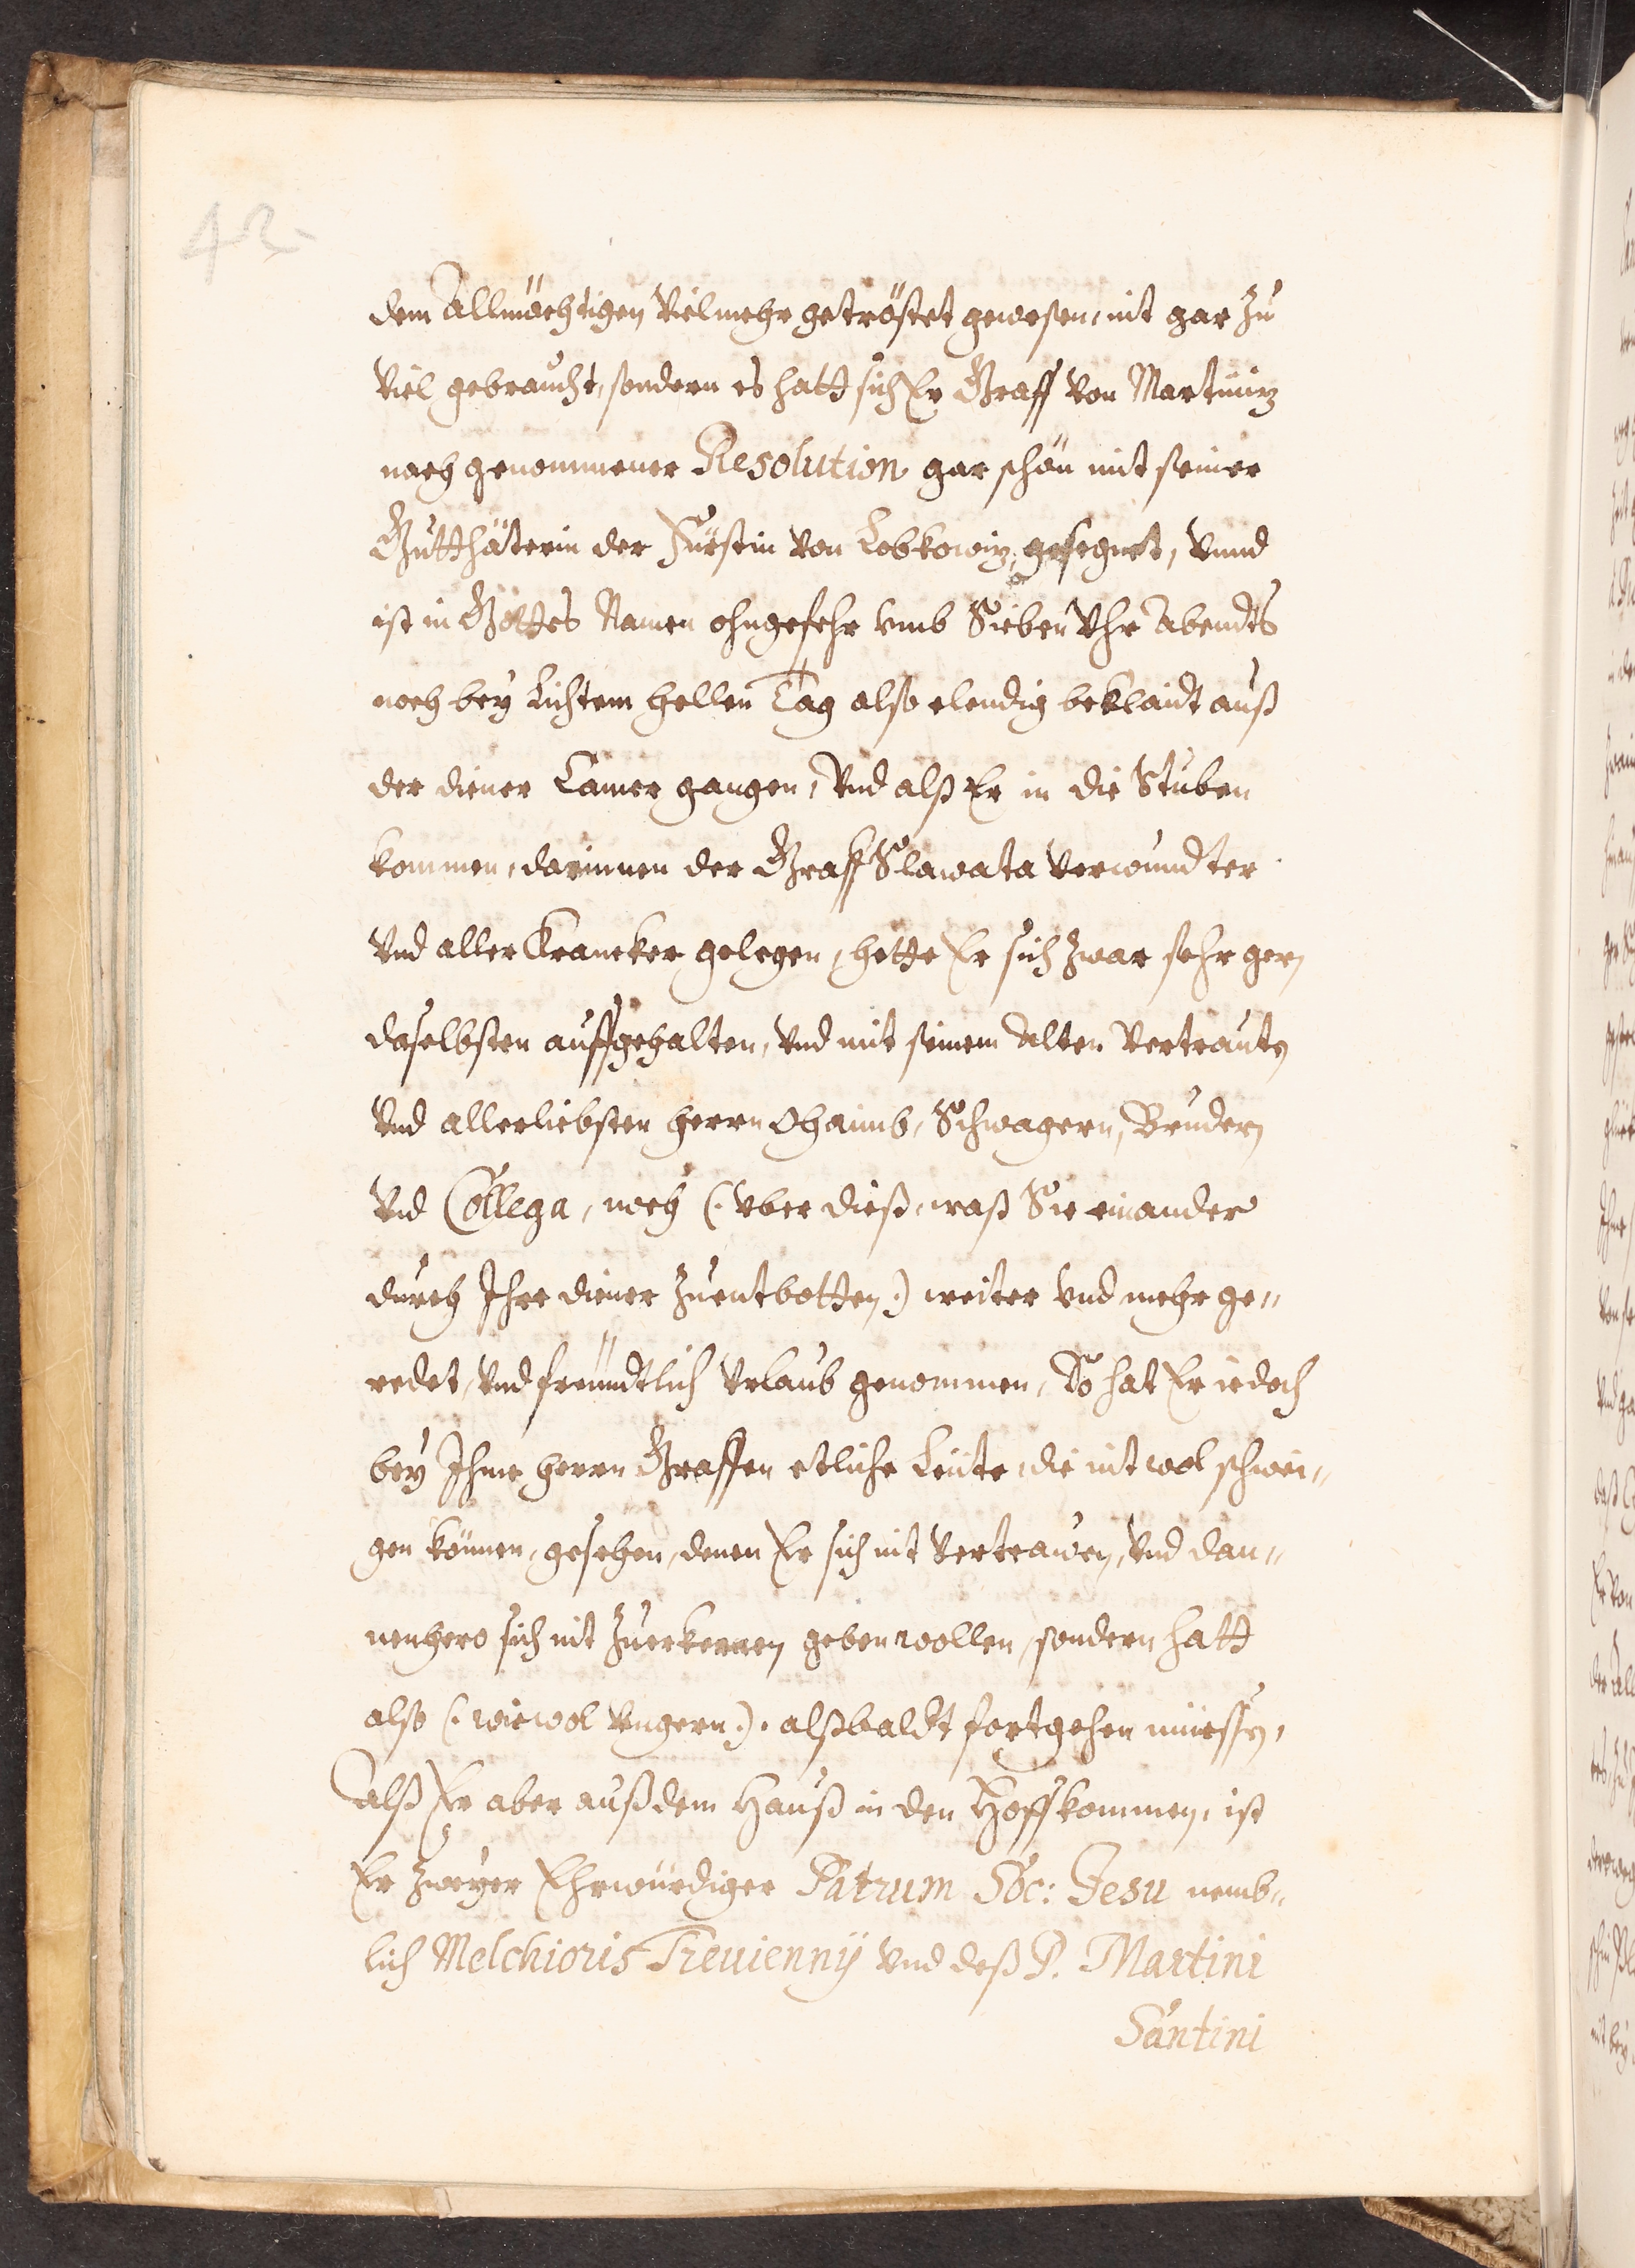 42.
dem Allmächtigen Vielmehr getröstet gewesen, nit gar Zu
Viel gebraucht, sondern es hatt sich Er Graff Von Martiniz
nach genommener Resolution gar schön mit seiner
Gutthäterin der Fürstin Von Lobkowiz, gesegnet, Vnnd
ist in Gottes Namen ohngefehr vmb Sieben Vhr Abendts
noch bey Lichtem hellen Tag also elendig beklaidt auß
der diener Camer gangen, Vnd alß Er in die Stuben
kommen, darinnen der Graff Slawata Verwundter
Vnd aller Krancker gelegen, hette Er sich Zwar sehr gern
daselbsten auffgehalten, Vnd mit seinem Alten Vertrauten
Vnd allerliebsten herrn Ohaimb, Schwagern, Brudern
Vnd Collega, noch (: vber dieß, waß Sie einander
durch Ihre diener Zuentbotten :) weiter Vnd mehr ge„
redet, Vnd freündtlich Vrlaub genommen, So hat Er iedoch
bey Ihme herrn Graffen etliche Leüte, die nit wol schwei„
gen können, gesehen, denen Er sich nit Vertrawen, Vnd dan„
nenhero sich nit Zuerkennen geben wollen, sondern hatt
also (: wiewol Vngern :) alßbaldt fortgehen müessen,
alß Er aber auß dem Hauß in den Hoff kommen, ist
Er Zweyer Ehrwürdiger Patrum Soc: Jesu nemb„
lich Melchioris Treuiennÿ Vnd deß P. Martini
Santini